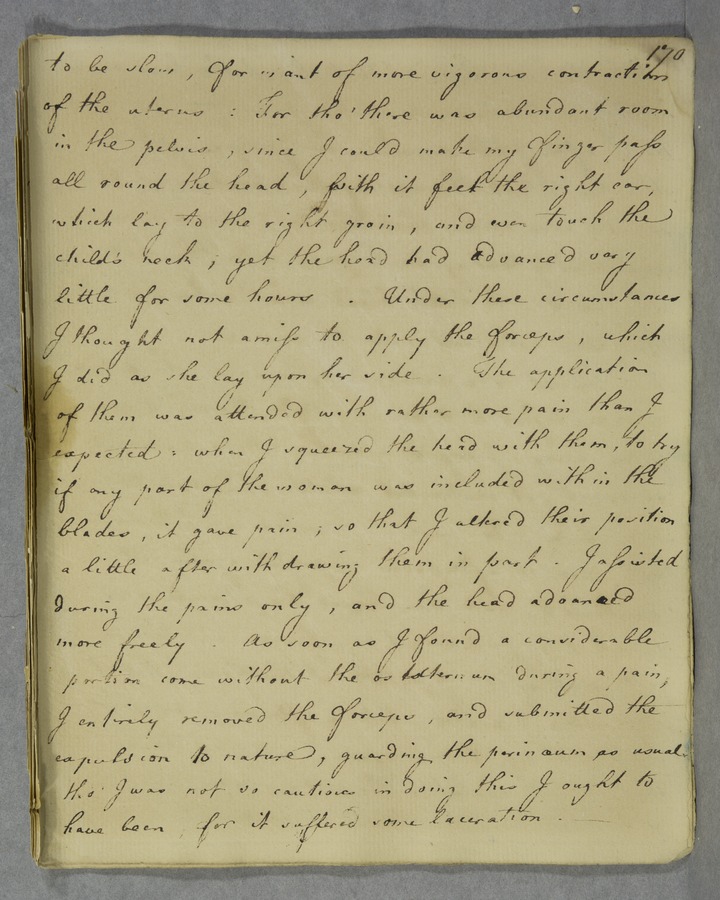 170
to be slow, for want of more vigorous contractions
of the uterus : For tho' there was abundant room
in the pelvis, since I could make my finger pass
all round the head, with it feel the right ear,
which lay to the right groin, and even touch the
child's neck ; yet the head had advanced very
little for some hours . Under these circumstances
I thought not amiss to apply the forceps, which
I did as she lay upon her side . The application
of them was attended with rather more pain than I
expected : when I squeezed the head with them, to try
if any part of the woman was included within the
blades, it gave pain ; so that I altered their position
a little after withdrawing them in part . I assisted
during the pains only, and the head advanced
more freely . As soon as I found a considerable
portion come without the os externum during a pain,
I entirely removed the forceps, and submitted the
expulsion to nature, guarding the perinæum as usual
tho' I was not so cautious in doing this I ought to
have been, for it suffered some laceration .